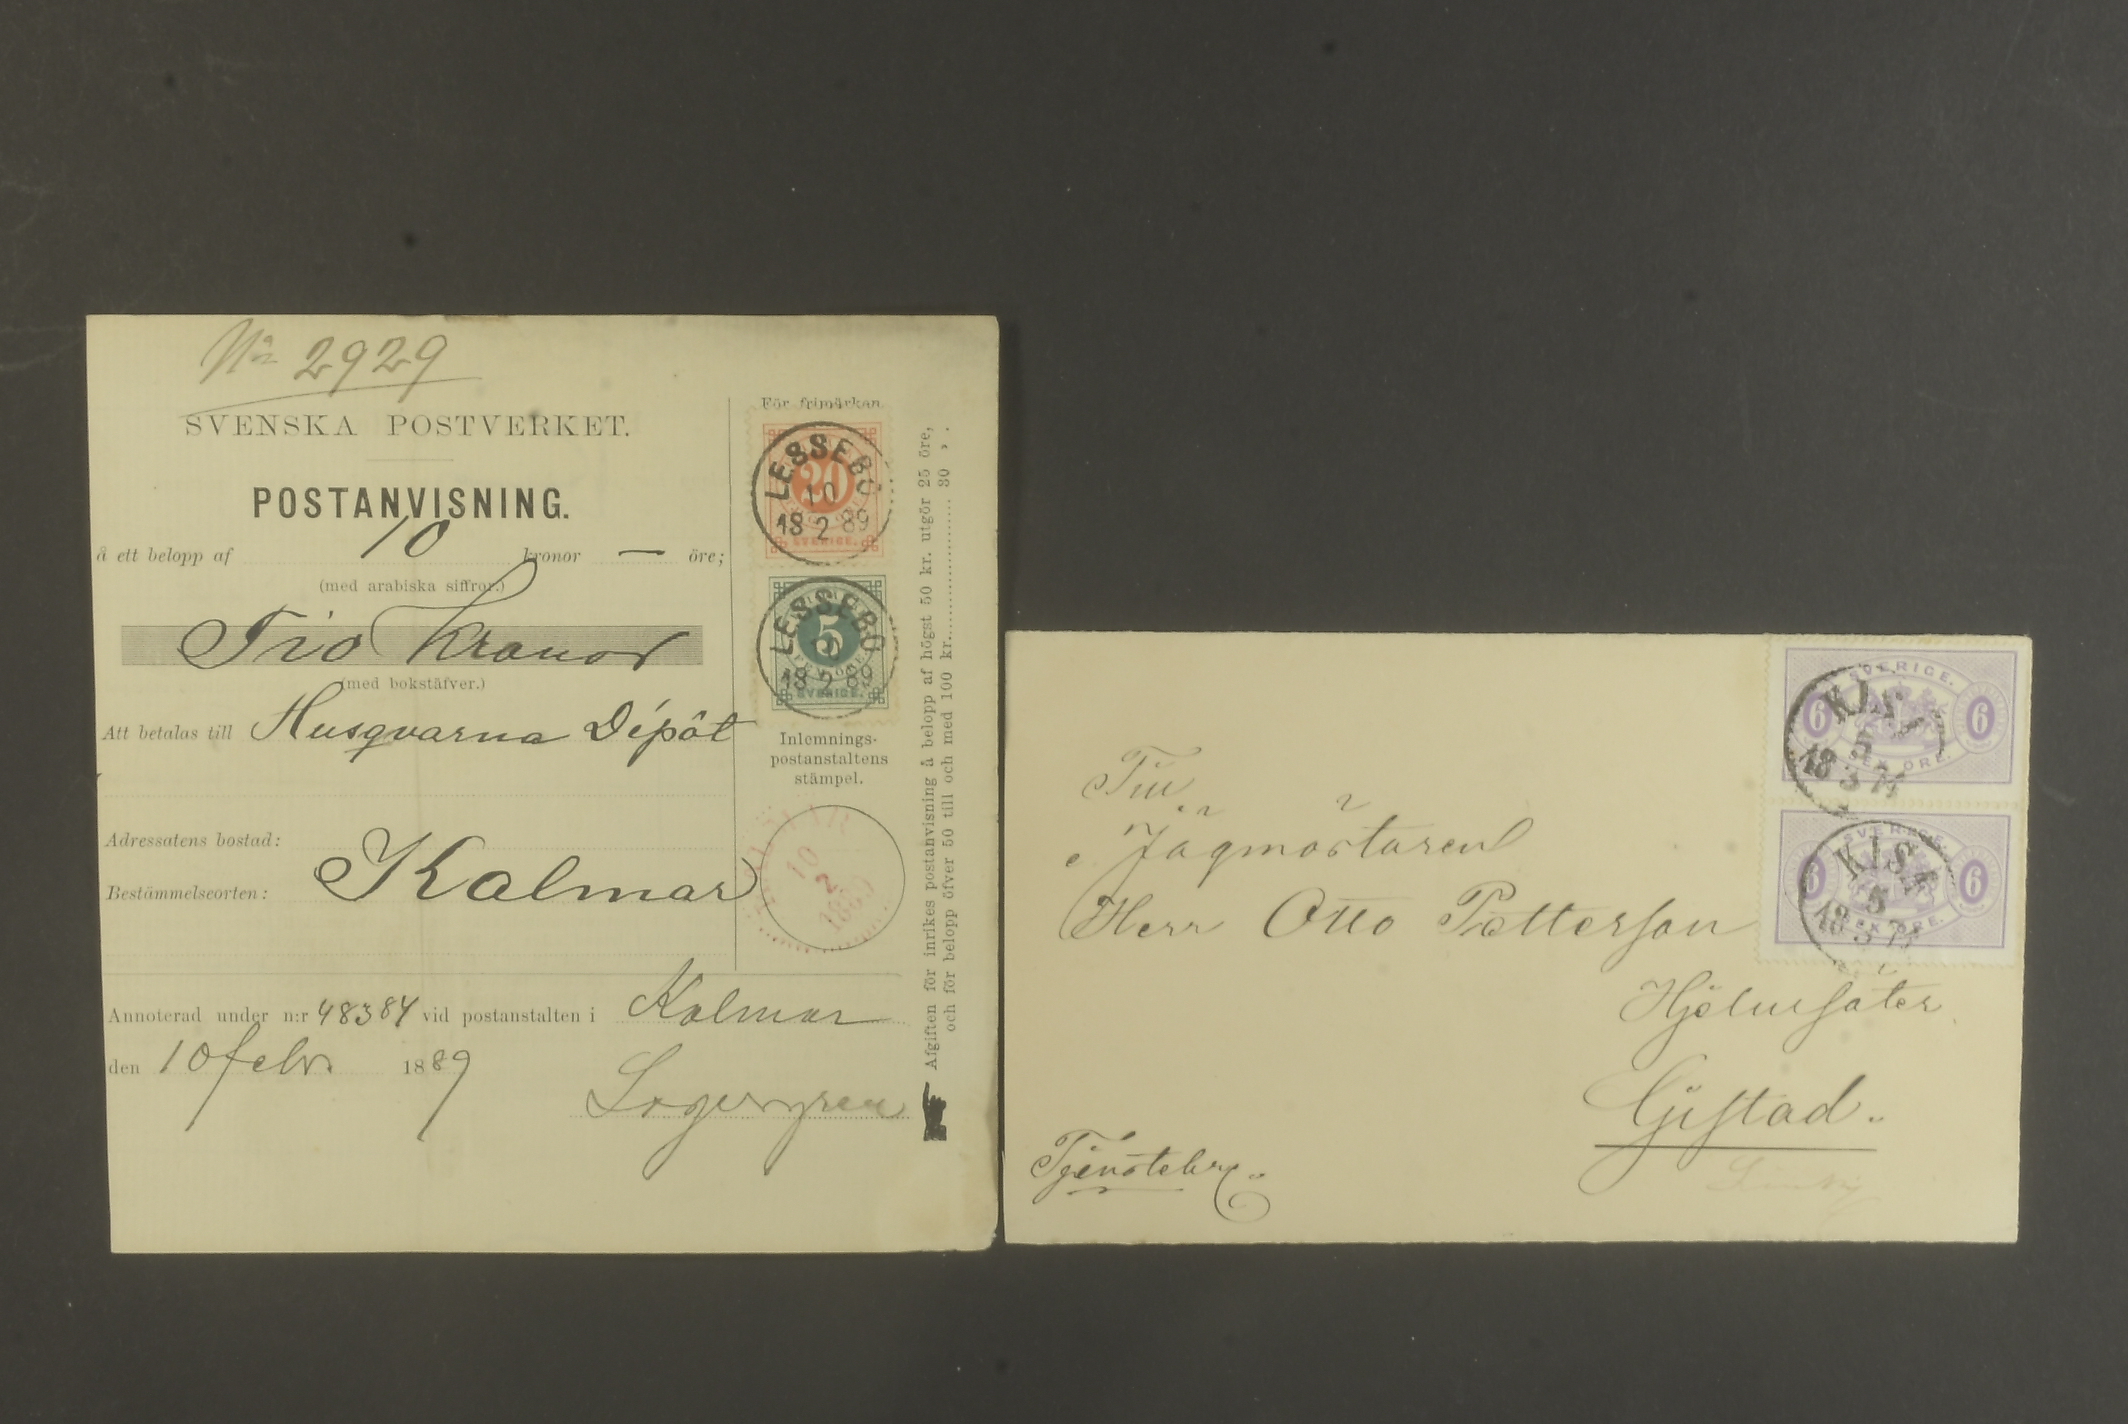 No 2929
SVENSKA POSTVERKET.
POSTANVISNING.
å ett belopp af 10 kronor — öre;
(med arabiska siffror.)
Tio Kronor
(med bokstäfver.)
Att betalas till Husqvarna Dépôt
Adressatens bostad:
Bestämmelseorten: Kalmar
Annoterad under n:r 48384 vid postanstalten i Kalmar
den 10 febr. 1889
Lagergren
För frimärken
LESSEBO
10
18 2 89
20
SVERIGE.
LESSEBO
10
18 2 89
5
FEM ÖRE
SVERIGE.
Inlemnings-
postanstaltens
stämpel.
KALMAR
10
2
1889
Afgiften för inrikes postanvisning å belopp af högst 50 kr. utgör 25 öre,
och för belopp öfver 50 till och med 100 kr. 30 „ .
SVERIGE.
6 6
SEX ÖRE.
KISA
5
18 3
SVERIGE.
6 6
SEX ÖRE.
KISA
5
18 3
Till
Jägmästaren
Herr Otto Petterson
Gistad.
Tjenstebref.